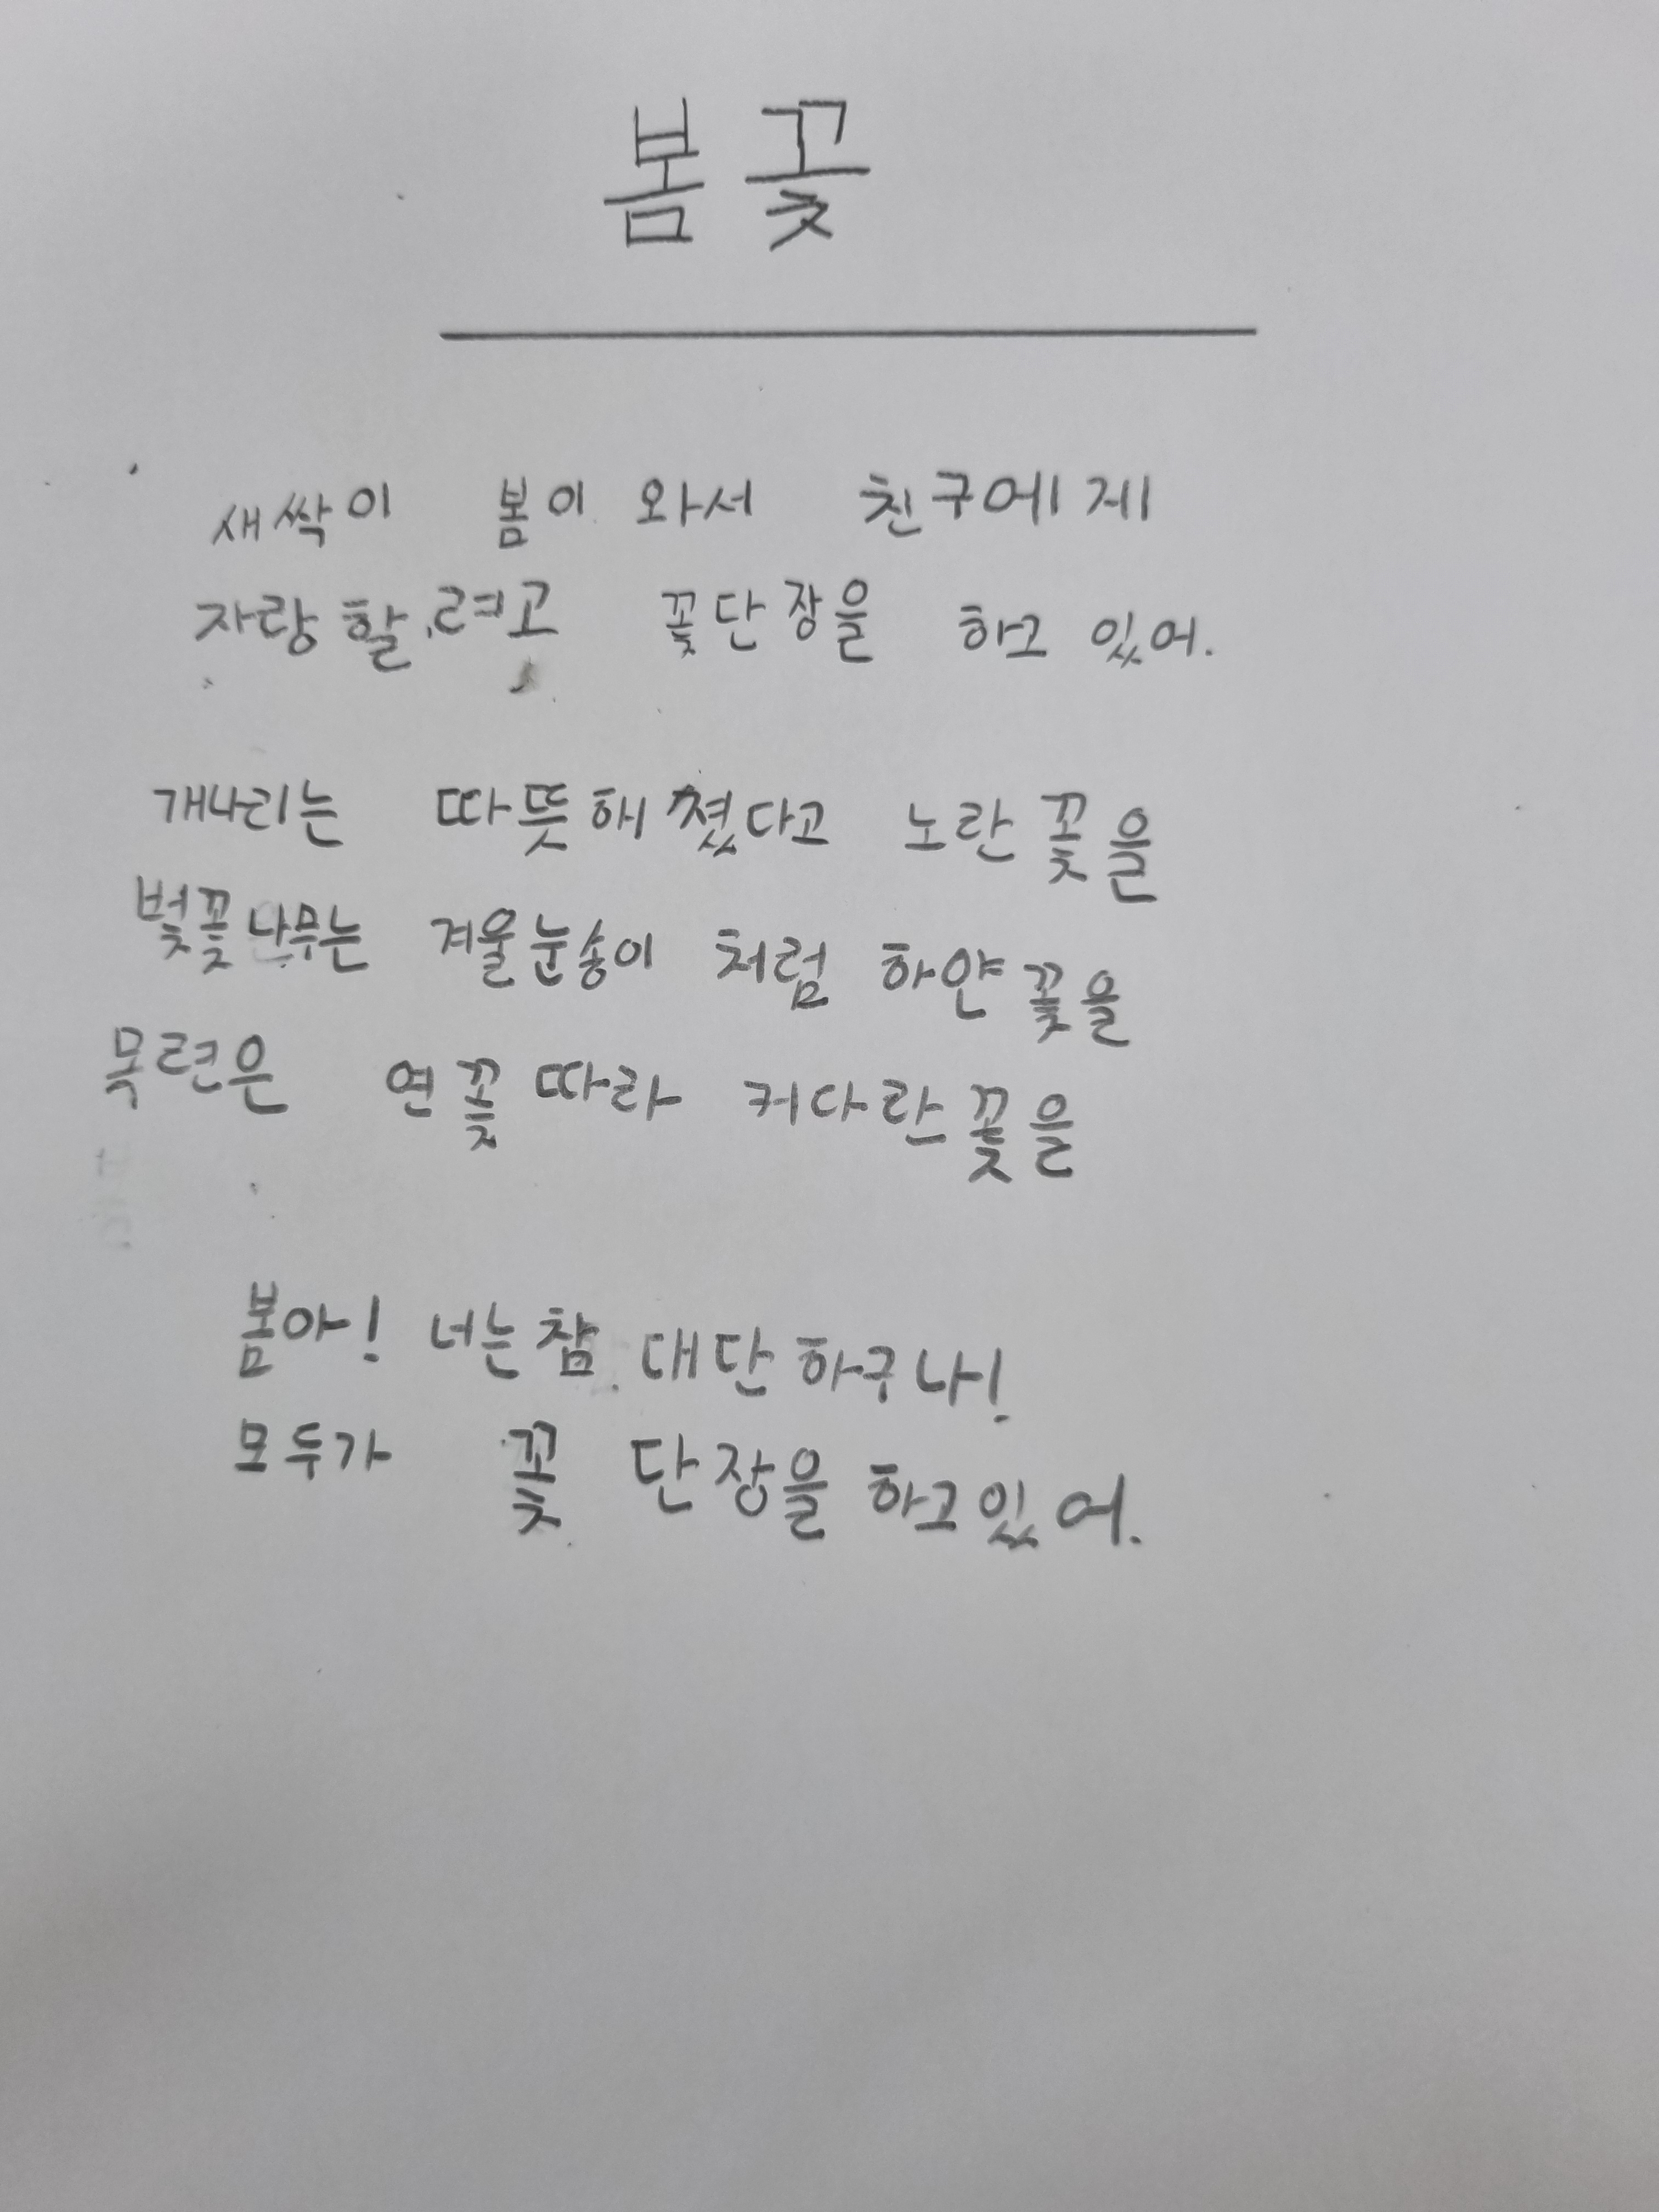 봄 꽃
새싹이 봄이 와서 친구에게
자랑할려고 꽃단장을 하고 있어.
개나리는 따뜻해졌다고 노란 꽃을
벚꽃나무는 겨울눈송이 처럼 하얀 꽃을
목련은 연꽃 따라 커다란 꽃을
봄아! 너는 참 대단하구나!
모두가 꽃 단장을 하고 있어.